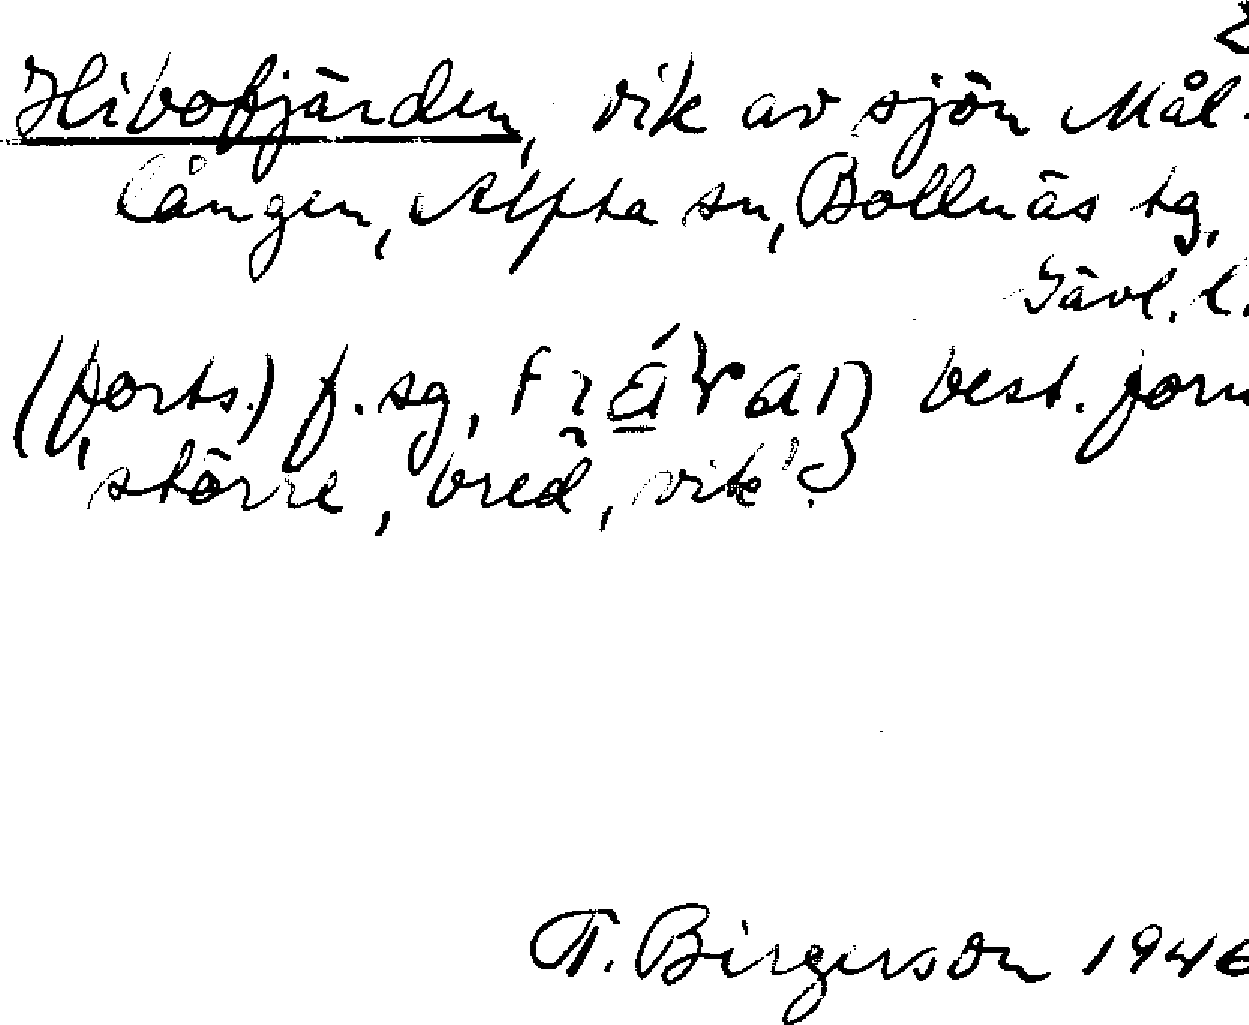 2
Hibofjärden, vik av sjön Mål-
lången, Alfta sn, Bollnäs tg,
Gävl. l.
(forts.) f. sg, best. form
'större, bred, vik'.
T. Birgerson 1946